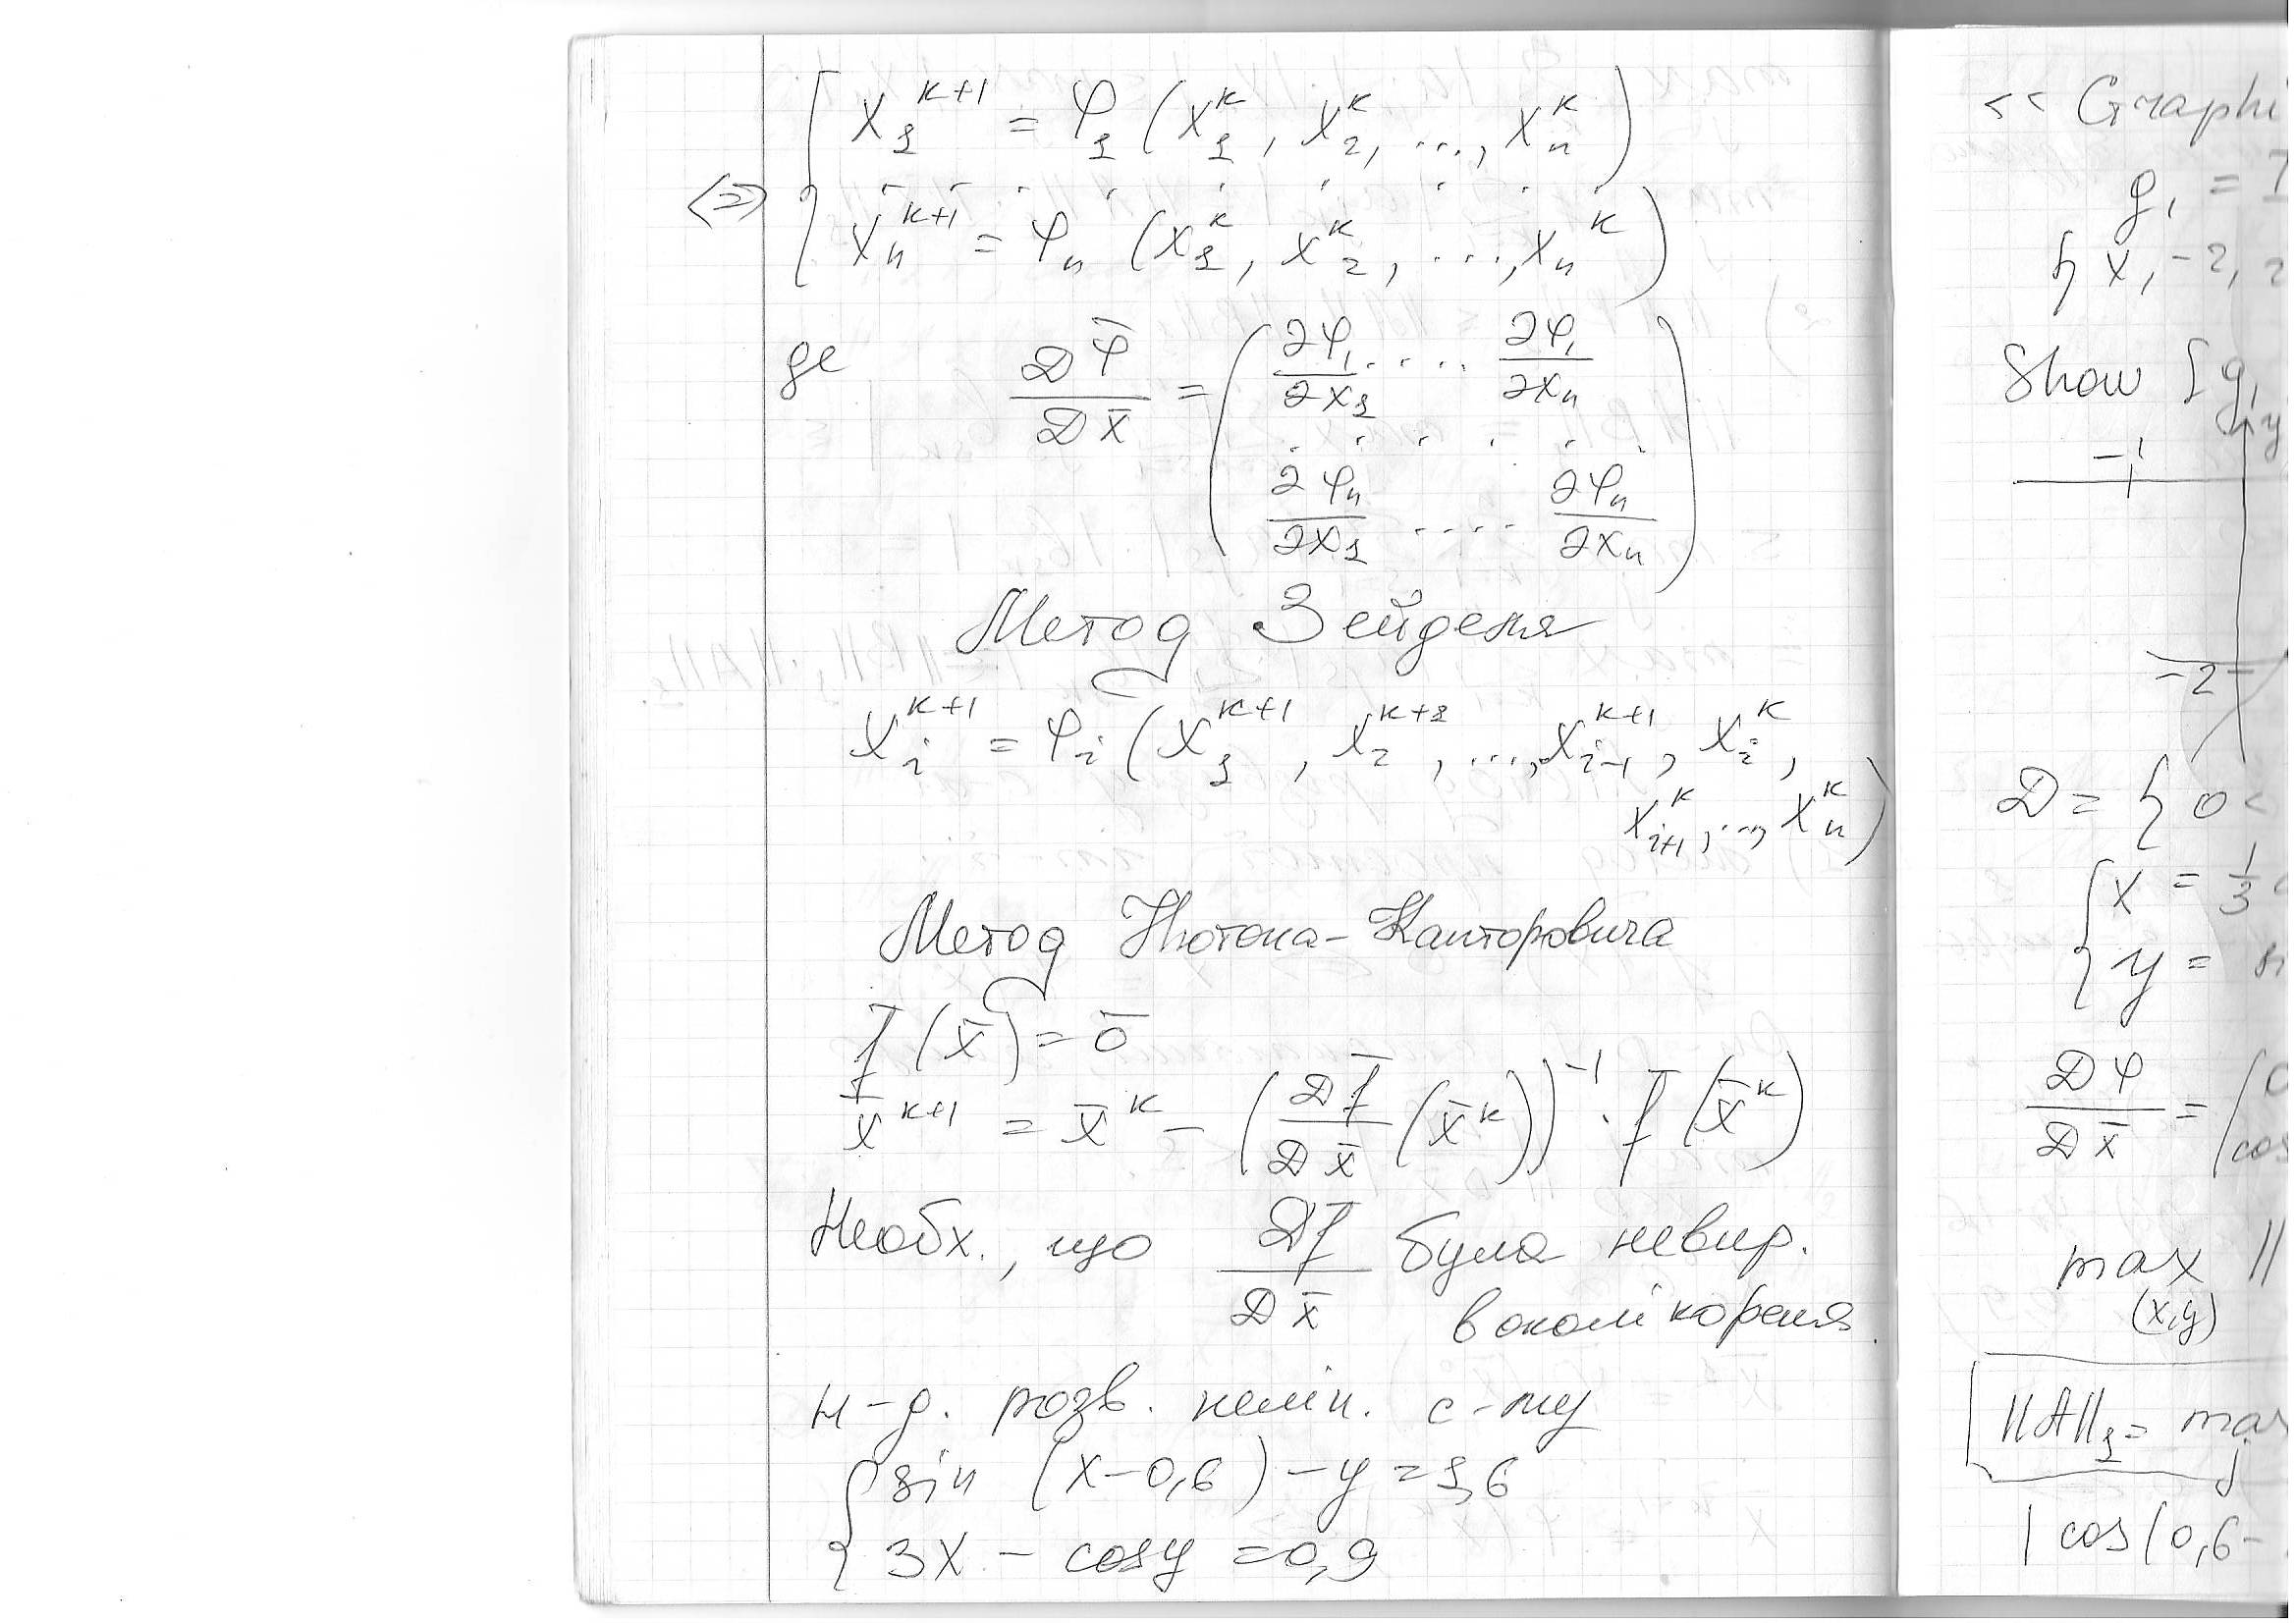 x₁ᵏ⁺¹ = φ₁ (x₁ᵏ, x₂ᵏ, ..., xₙᵏ)
⇔ { . . . . . . . . .
xₙᵏ⁺¹ = φₙ (x₁ᵏ, x₂ᵏ, ..., xₙᵏ)
де Dφ̄/Dx̄ = ( ∂φ₁/∂x₁ .... ∂φ₁/∂xₙ
. . . . . .
∂φₙ/∂x₁ .... ∂φₙ/∂xₙ )
Метод Зейделя
xᵢᵏ⁺¹ = φᵢ (x₁ᵏ⁺¹, x₂ᵏ⁺¹, ..., xᵢ₋₁ᵏ⁺¹, xᵢᵏ,
xᵢ₊₁ᵏ, ..., xₙᵏ)
Метод Ньютона-Канторовича
f̄ (x̄) = ō
x̄ᵏ⁺¹ = x̄ᵏ - (Df̄/Dx̄ (x̄ᵏ))⁻¹ · f̄ (x̄ᵏ)
Необх., що Df̄/Dx̄ була невир.
в околі кореня.
н-д. розв. нелін. с-му
{ sin (x-0,6) - y = 1,6
3x - cosy = 0,9
<< Graphi
g₁ =
{ x, -2, 2
Show [g₁
-1
y
-2
D = { 0 <
{ x = 1/3
y =
Dφ/Dx̄ = ( 0
cos
max ||
(x,y)
||A||₁ = max
j
| cos(0,6-